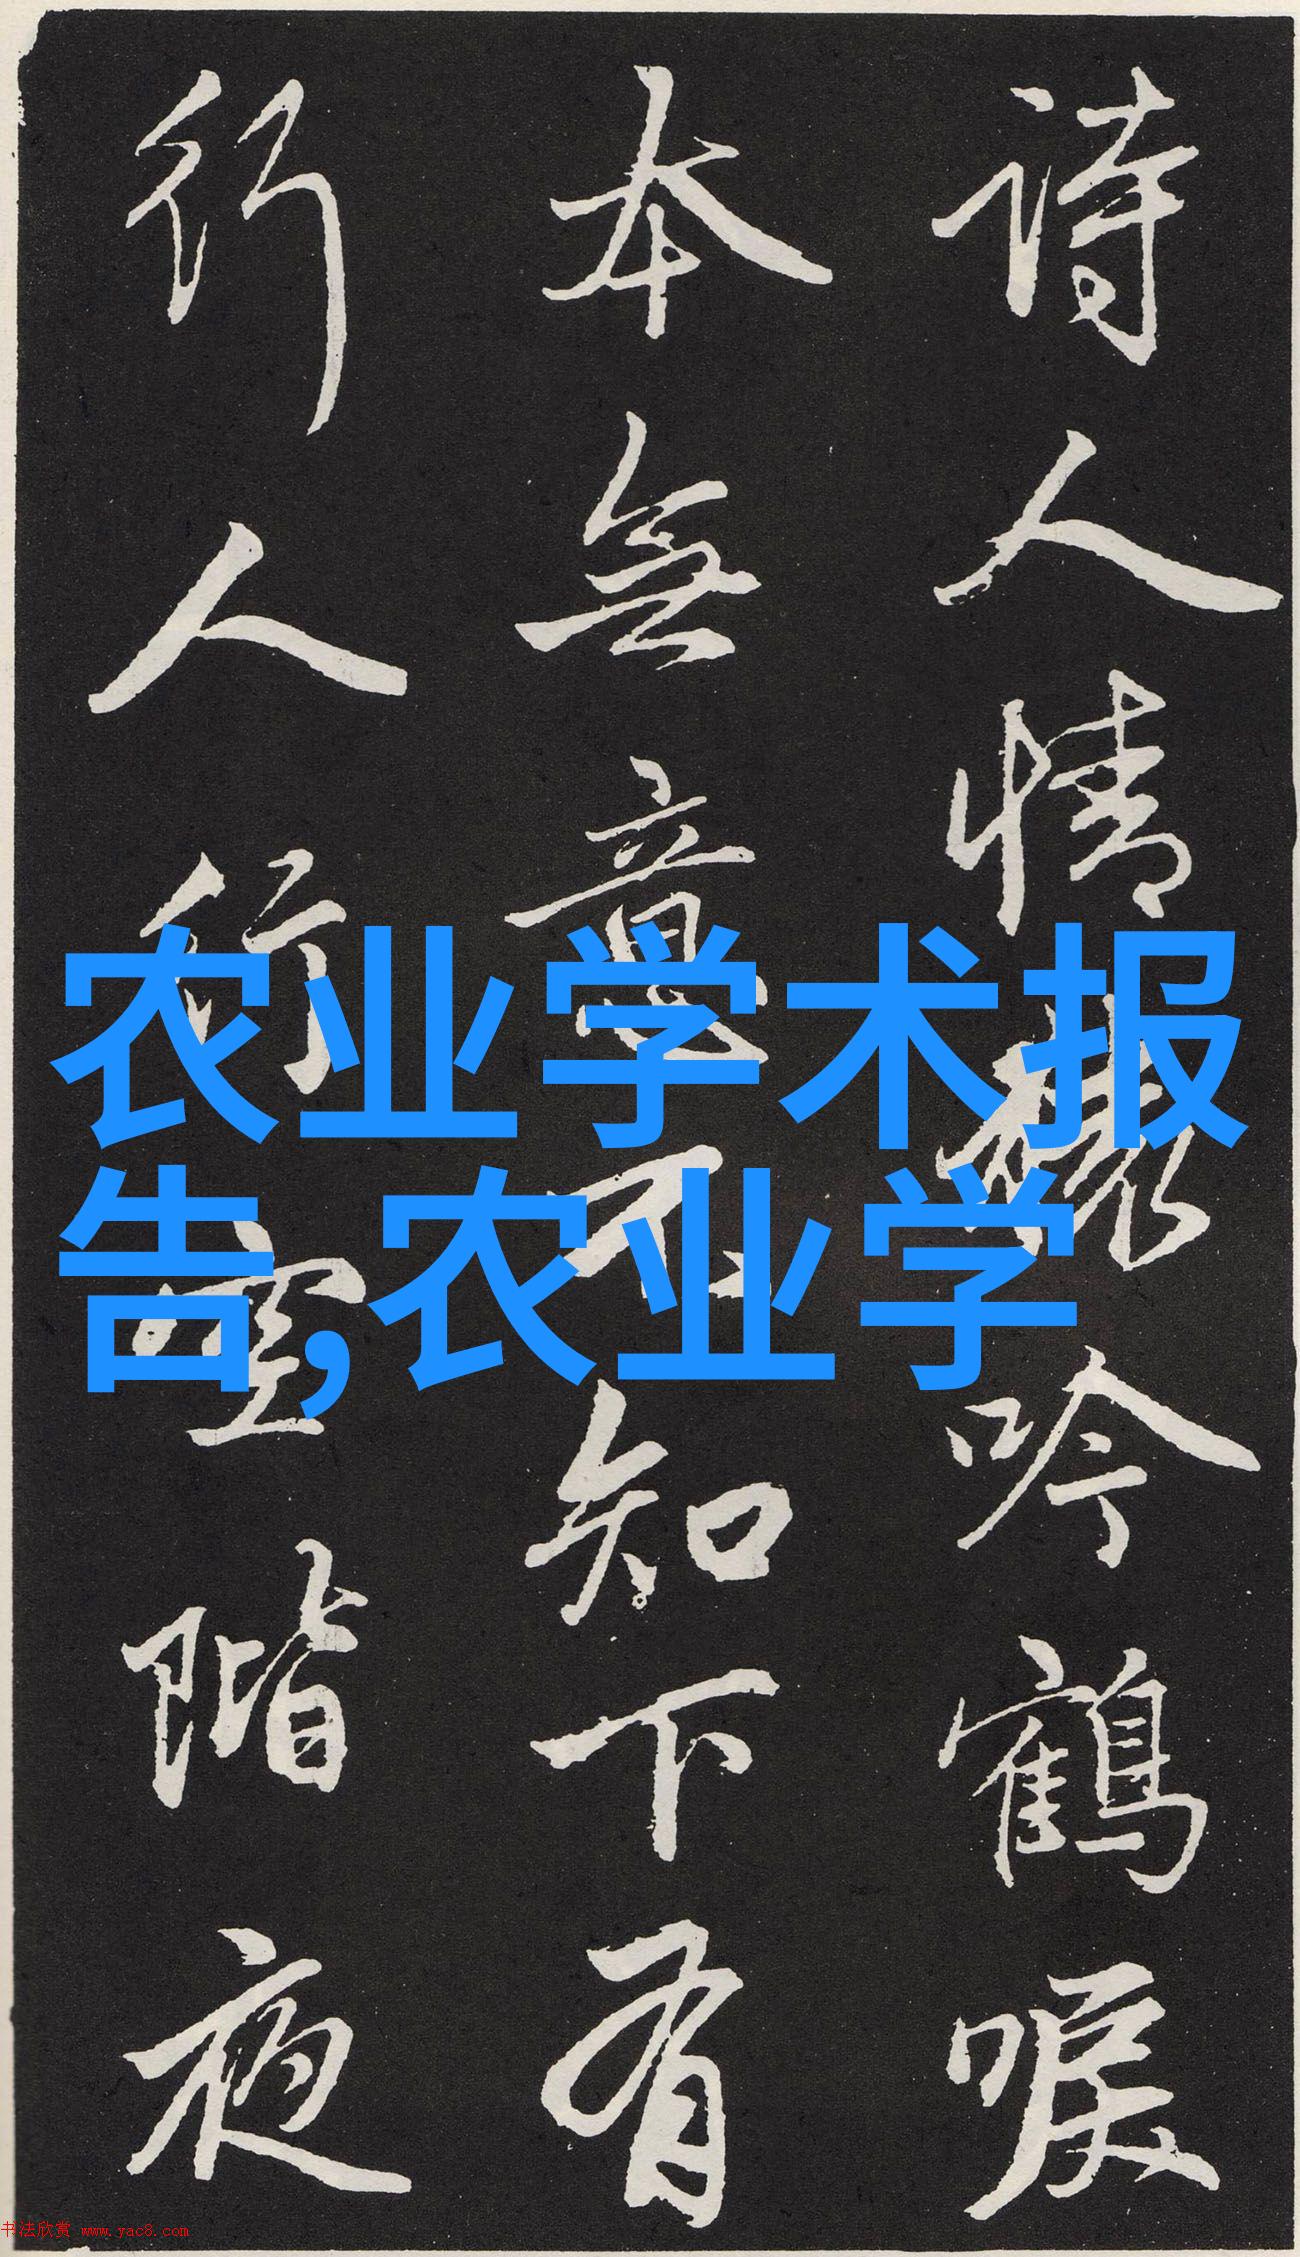 詩人情吟鶴唳
本無意不知下有
行人行空階夜
农业学术报
告,农业学
书法欣赏 www.yac8.com